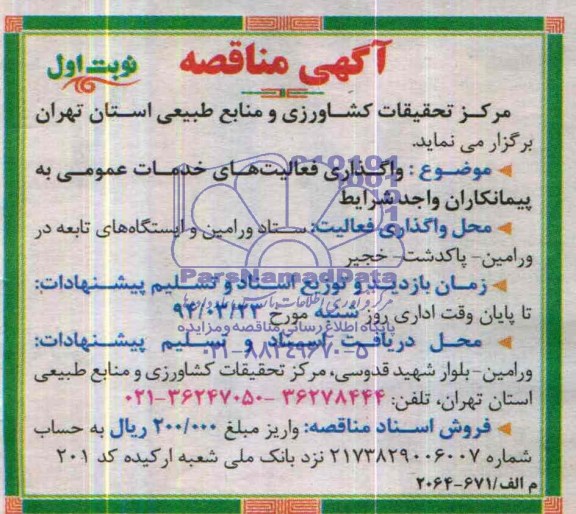 آگهی مناقصه
نوبت اول
مرکز تحقیقات کشاورزی و منابع طبیعی استان تهران
برگزار می نماید.
موضوع : واگذاری فعالیت‌های خدمات عمومی به
پیمانکاران واجد شرایط
محل واگذاری فعالیت: ستاد ورامین و ایستگاه‌های تابعه در
ورامین- پاکدشت- خجیر
زمان بازدید و توزیع اسناد و تسلیم پیشنهادات:
تا پایان وقت اداری روز شنبه مورخ ۹۴/۰۳/۲۳
محل دریافت اسناد و تسلیم پیشنهادات:
ورامین-بلوار شهید قدوسی، مرکز تحقیقات کشاورزی و منابع طبیعی
استان تهران، تلفن: ۳۶۲۷۸۴۴۴ -۳۶۲۴۷۰۵۰-۰۲۱
فروش اسناد مناقصه: واریز مبلغ ۲۰۰/۰۰۰ ریال به حساب
شماره ۲۱۷۳۸۲۹۰۰۶۰۰۷ نزد بانک ملی شعبه ارکیده کد ۲۰۱
م الف/۶۷۱-۲۰۶۴
ParsNamadData
پایگاه اطلاع رسانی مناقصه و مزایده
۰۲۱-۸۸۳۴۹۶۷۰-۵